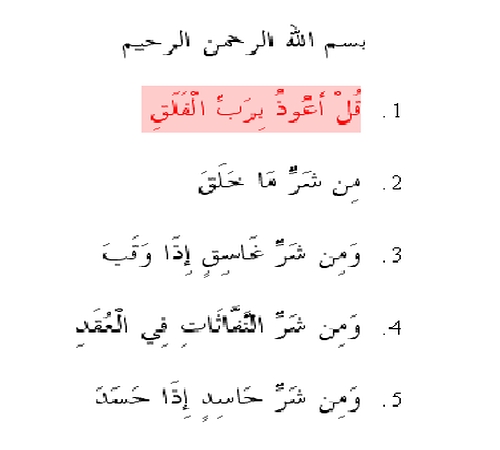 بسم الله الرحمن الرحيم
1. قُلْ أَعُوذُ بِرَبِّ الْفَلَقِ
2. مِن شَرِّ مَا خَلَقَ
3. وَمِن شَرِّ غَاسِقٍ إِذَا وَقَبَ
4. وَمِن شَرِّ النَّفَّاثَاتِ فِي الْعُقَدِ
5. وَمِن شَرِّ حَاسِدٍ إِذَا حَسَدَ